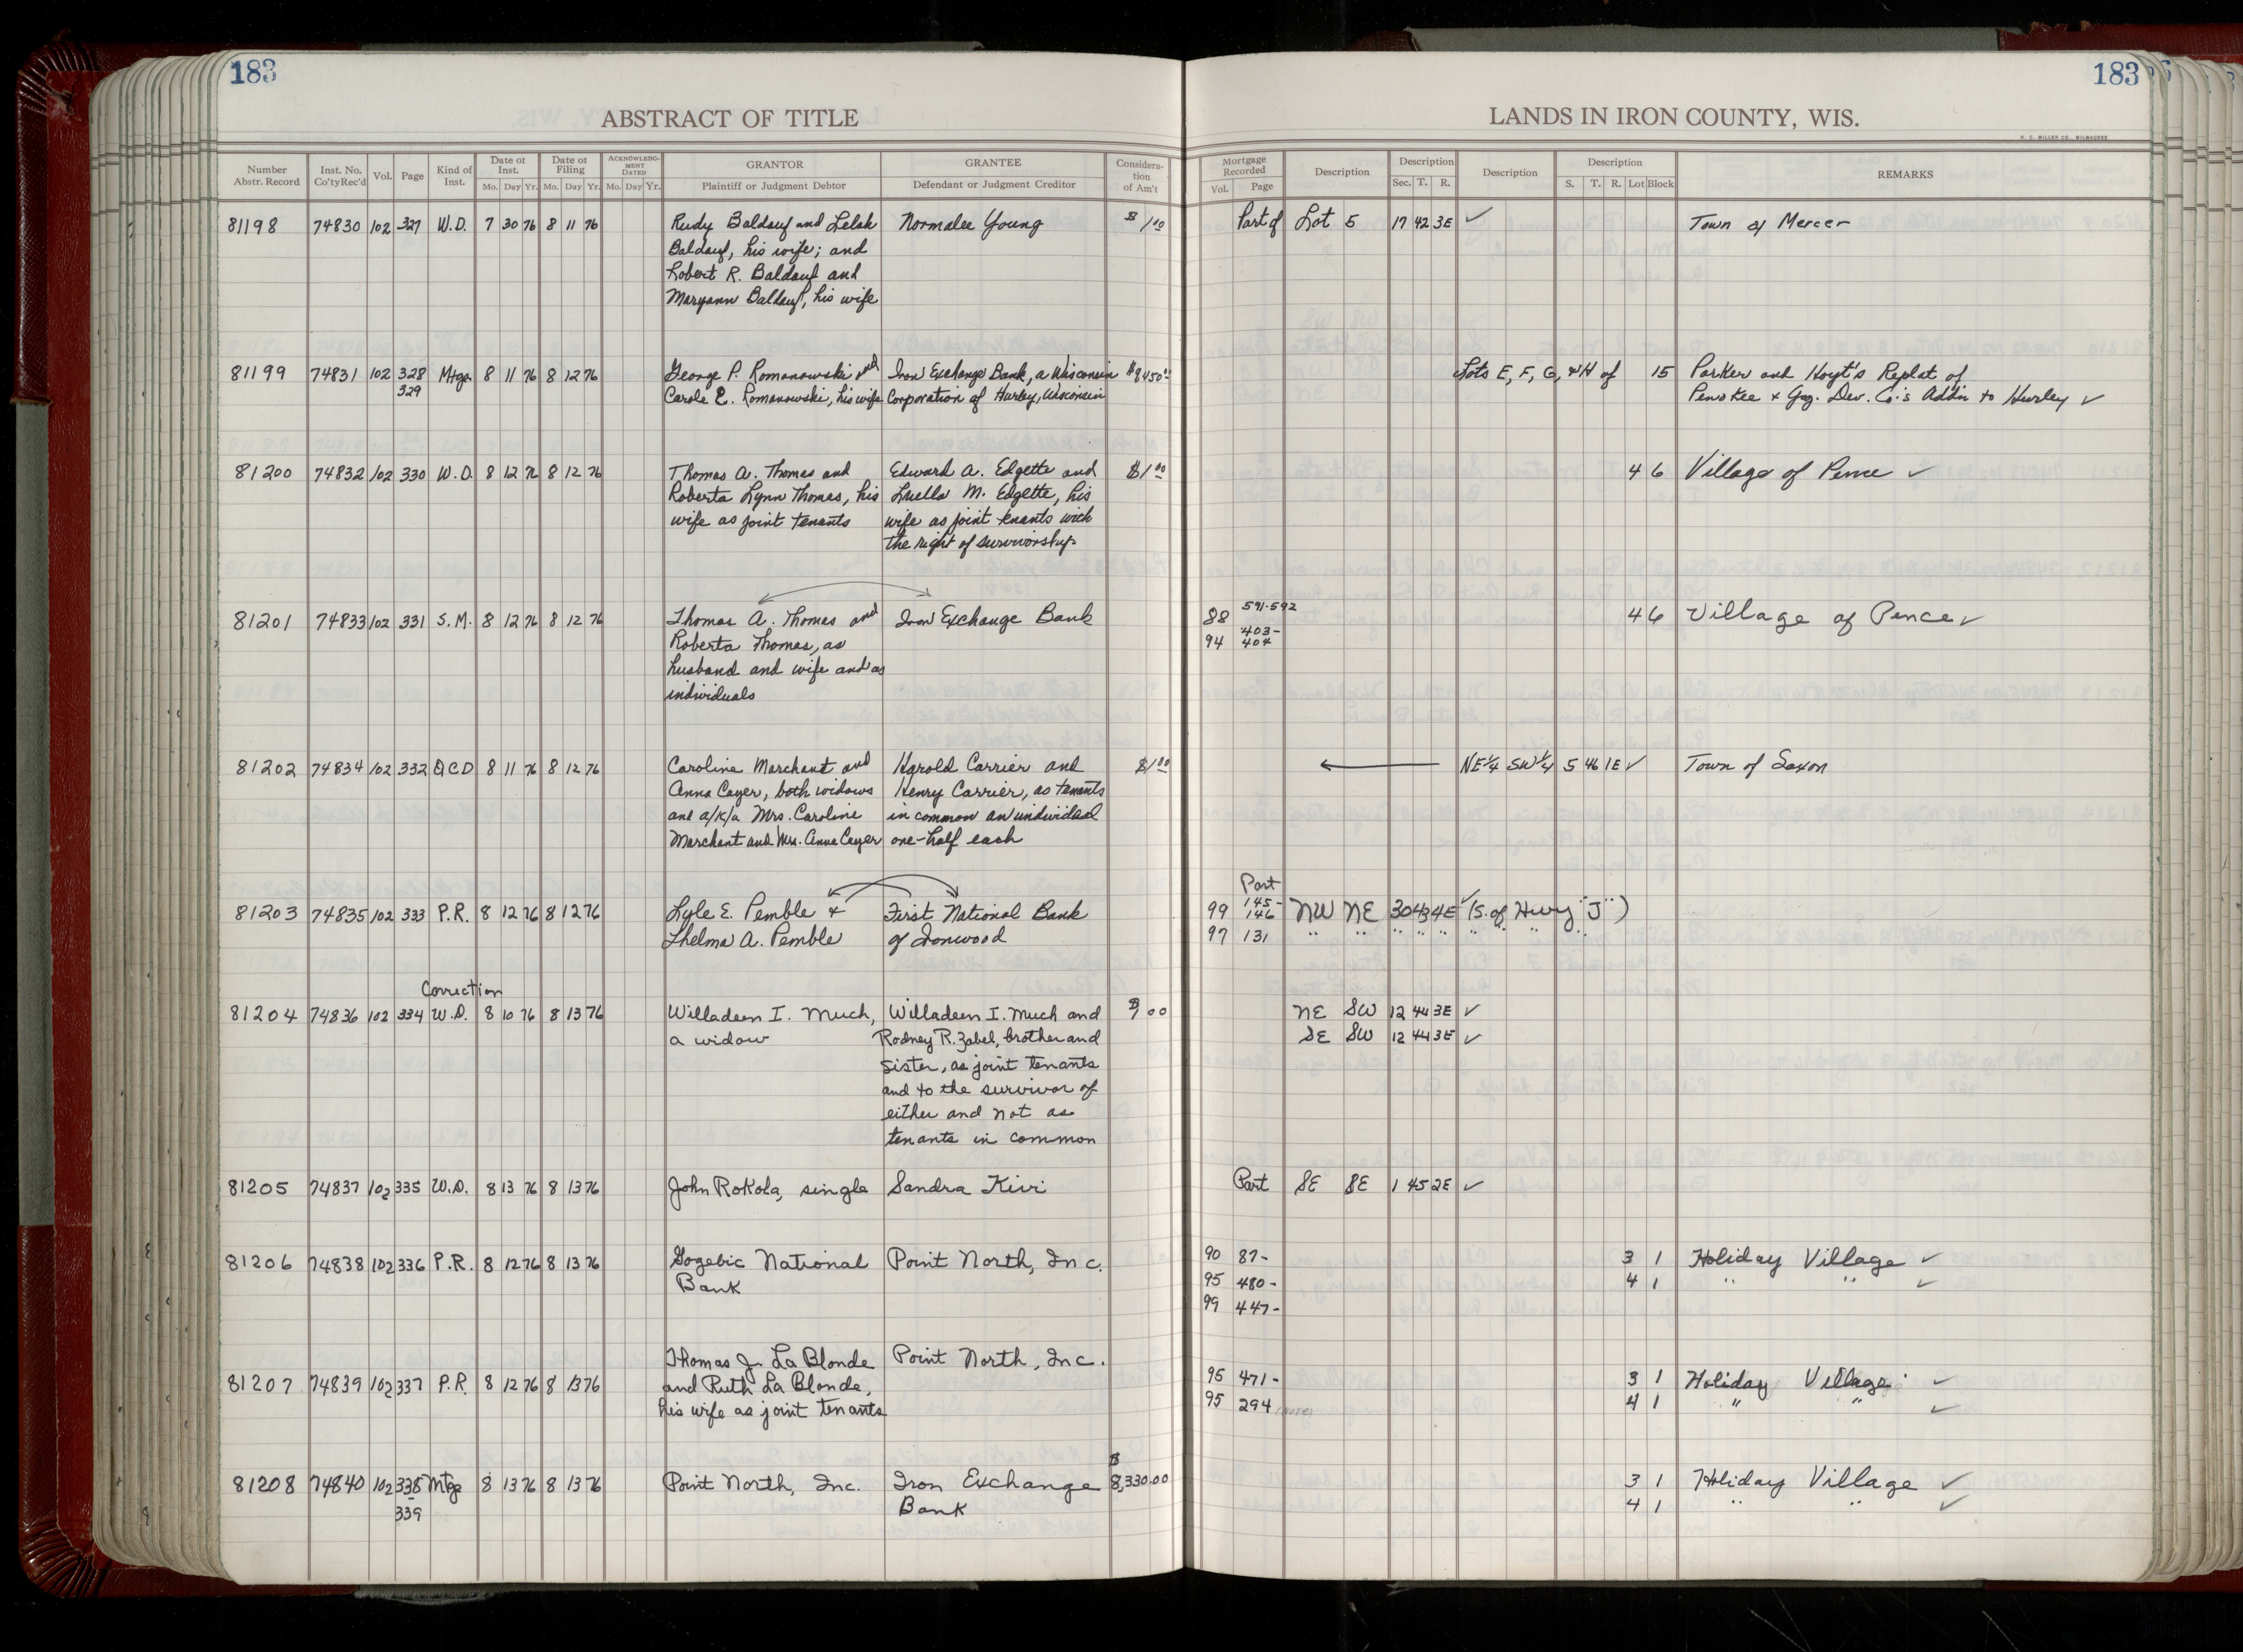 183
183
ABSTRACT OF TITLE
LANDS IN IRON COUNTY, WIS.
H. C. MILLER CO., MILWAUKEE
Number Abstr. Record | Inst. No. Co'ty Rec'd | Vol. | Page | Kind of Inst. | Date of Inst. Mo. Day Yr. | Date of Filing Mo. Day Yr. | ACKNOWLEDGMENT DATED Mo. Day Yr. | GRANTOR Plaintiff or Judgment Debtor | GRANTEE Defendant or Judgment Creditor | Consideration of Am't | Mortgage Recorded Vol. Page | Description | Description Sec. T. R. | Description | Description S. T. R. Lot Block | REMARKS
81198 74830 102 327 W.D. 7 30 76 8 11 76 Rudy Baldauf and Lelah Normalee Young $1.00 Part of Lot 5 17 42 3E ✓ Town of Mercer
Baldauf, his wife; and
Robert R. Baldauf and
Maryann Baldauf, his wife
81199 74831 102 328 Mtge. 8 11 76 8 12 76 George P. Romanowski and Iron Exchange Bank, a Wisconsin $8450.00 Lots E, F, G, + H of 15 Parker and Hoyt's Replat of
329 Carole E. Romanowski, his wife Corporation of Hurley, Wisconsin Penokee + Gog. Dev. Co.'s Add'n to Hurley ✓
81200 74832 102 330 W.D. 8 12 76 8 12 76 Thomas A. Thomas and Edward A. Edgette and $1.00 4 6 Village of Pence ✓
Roberta Lynn Thomas, his Luella M. Edgette, his
wife as joint tenants wife as joint tenants with
the right of survivorship
81201 74833 102 331 S.M. 8 12 76 8 12 76 Thomas A. Thomas and Iron Exchange Bank 88 591-592 4 6 Village of Pence ✓
Roberta Thomas, as 94 403-404
husband and wife and as
individuals
81202 74834 102 332 QCD 8 11 76 8 12 76 Caroline Marchant and Harold Carrier and $1.00 ← NE¼ SW¼ 5 46 1E ✓ Town of Saxon
Anna Cayer, both widows Henry Carrier, as tenants
and a/k/a Mrs. Caroline in common an undivided
Marchant and Mrs. Anna Cayer one-half each
Part
81203 74835 102 333 P.R. 8 12 76 8 12 76 Lyle E. Pemble + First National Bank 99 145-146 NW NE 30 43 4E ✓ (S. of Hwy "J")
Thelma A. Pemble of Ironwood 97 131 " " " " " " " " "
Correction
81204 74836 102 334 W.D. 8 10 76 8 13 76 Willadeen I. Much, Willadeen I. Much and NE SW 12 44 3E ✓
a widow Rodney R. Zabel, brother and SE SW 12 44 3E ✓
sister, as joint tenants
and to the survivor of
either and not as
tenants in common
81205 74837 102 335 W.D. 8 13 76 8 13 76 John Rokola, single Sandra Kivi Part SE SE 1 45 2E ✓
81206 74838 102 336 P.R. 8 12 76 8 13 76 Gogebic National Point North, Inc. 90 87- 3 1 Holiday Village ✓
Bank 95 480- 4 1 " " ✓
99 447-
Thomas J. La Blonde Point North, Inc.
81207 74839 102 337 P.R. 8 12 76 8 13 76 and Ruth La Blonde, 95 471- 3 1 Holiday Village ✓
his wife as joint tenants 95 294 (NOTE) 4 1 " " ✓
81208 74840 102 338 Mtge 8 13 76 8 13 76 Point North, Inc. Iron Exchange $8,330.00 3 1 Holiday Village ✓
339 Bank 4 1 " " ✓